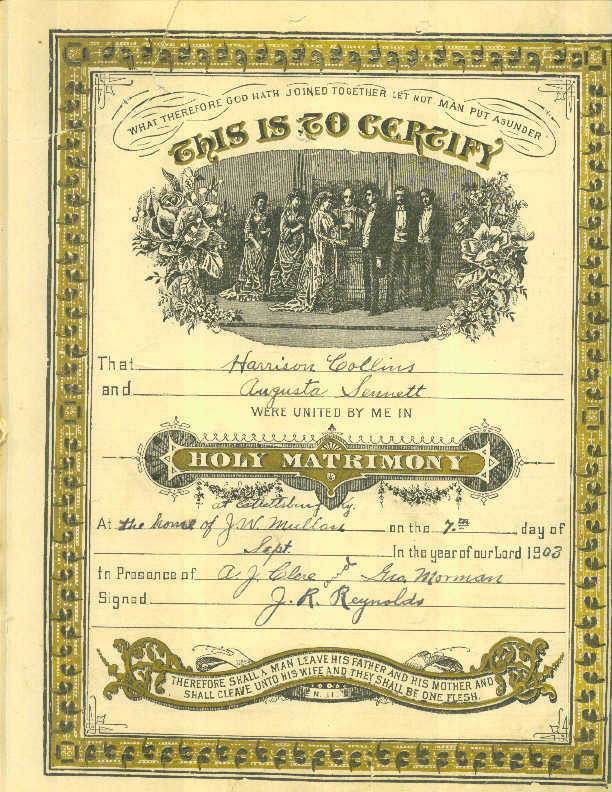 WHAT THEREFORE GOD HATH JOINED TOGETHER LET NOT MAN PUT ASUNDER
THIS IS TO CERTIFY
That Harrison Collins
and Augusta Sennett
WERE UNITED BY ME IN
HOLY MATRIMONY
at Catlettsburg Ky.
At the home of J. W. Mullan on the 7.th day of
Sept. In the year of our Lord 1903
In Presence of A. J. Clere and Gra Morman
Signed J. R. Reynolds
THEREFORE SHALL A MAN LEAVE HIS FATHER AND HIS MOTHER AND
SHALL CLEAVE UNTO HIS WIFE AND THEY SHALL BE ONE FLESH.